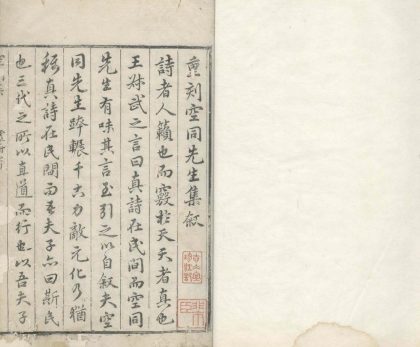 重刻空同先生集敘
詩者人籟也而竅於天天者真也
王叔武之言曰真詩在民間而空同
先生有味其言至引之以自敘夫空
同先生跨輾千古力敵元化乃猶
稱真詩在民間而吾夫子亦曰斯民
也三代之所以直道而行也以吾夫子